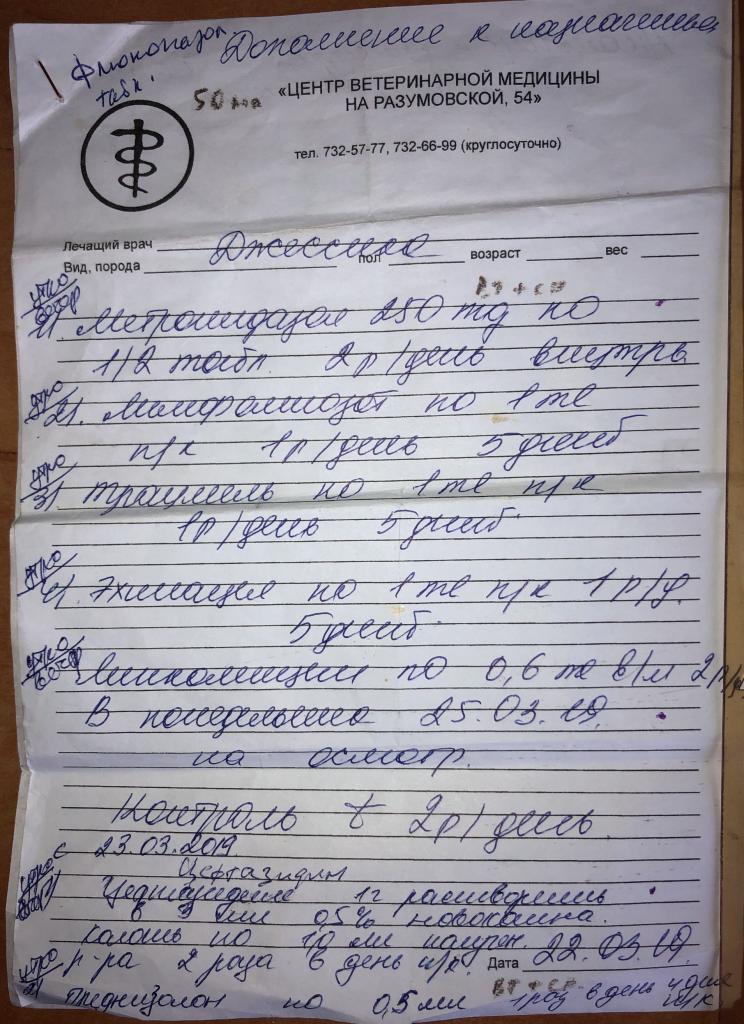 Дополнение к назначениям
Флюконазол
табл.
50 мг
«ЦЕНТР ВЕТЕРИНАРНОЙ МЕДИЦИНЫ
НА РАЗУМОВСКОЙ, 54»
тел. 732-57-77, 732-66-99 (круглосуточно)
Лечащий врач
Джессика
Вид, порода пол возраст вес
вт + ср
утро
вечер
1) Метронидазол 250 mg по
1/2 табл. 2р/день внутрь
утро
2). Лимфомиозот по 1 мл
п/к 1р/день 5 дней
утро
3) Траумель по 1 мл п/к
1р/день 5 дней.
утро
4). Эхинацея по 1 мл п/к 1 р/д.
5 дней.
утро
вечер
Линкомицин по 0,6 мл в/м 2р/д
В понедельник 25.03.19.
на осмотр.
Контроль t 2р/день.
утро с 23.03.2019
вечер
Цефтазидим
1г растворить
в 5 мл 0,5% новокаина.
колоть по 1,0 мл
р-ра 2 раза в день п/к.
Дата 22.03.19.
утро
2) Преднизолон по 0,5 мл 1 раз в день 4 дня
вт + ср.
п/к